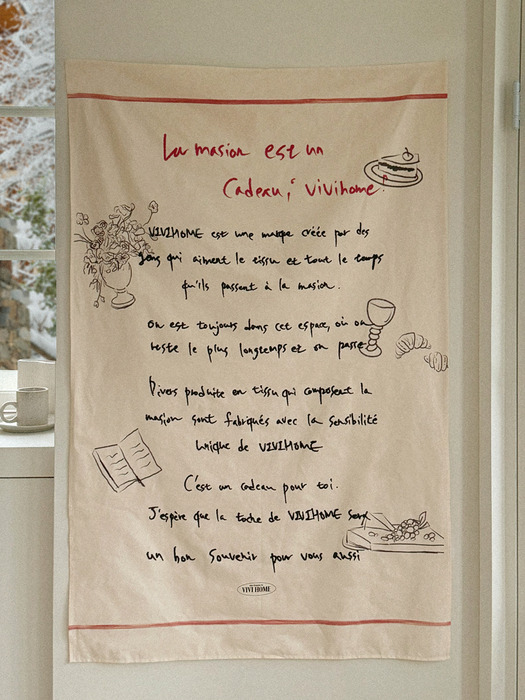 La masion est un
Cadeau, vivihome!
VIVIHOME est une marque créée par des
gens qui aiment le tissu et tout le temps
qu'ils passent à la masion.
on est toujours dans cet espace, où on
reste le plus longtemps et on passe
Divers produite en tissu qui composent la
masion sont fabriqués avec la sensibilité
unique de VIVIHOME
C'est un cadeau pour toi.
J'espère que la toche de VIVIHOME sera
un bon souvenir pour vous aussi
VIVI HOME